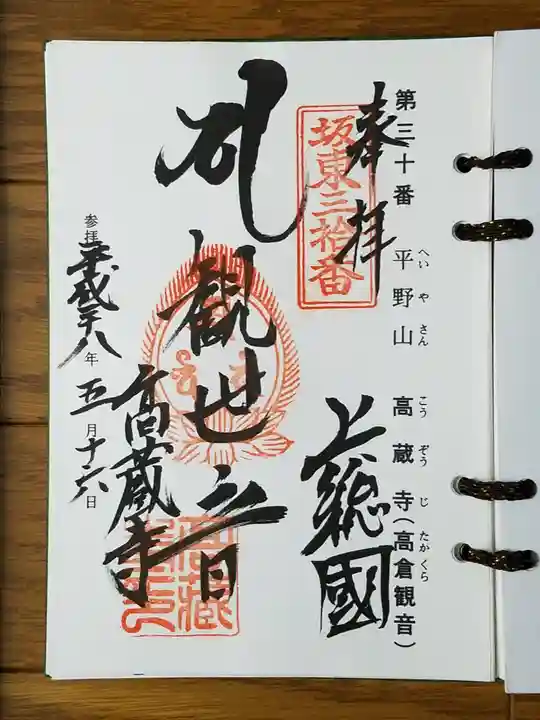 第三十番 平野山 高蔵寺(高倉観音)
へいやさん こうぞうじ たかくら
奉拝
坂東三拾番
上総國
観世音
高蔵寺
参拝 平成二十八年 五月十六日